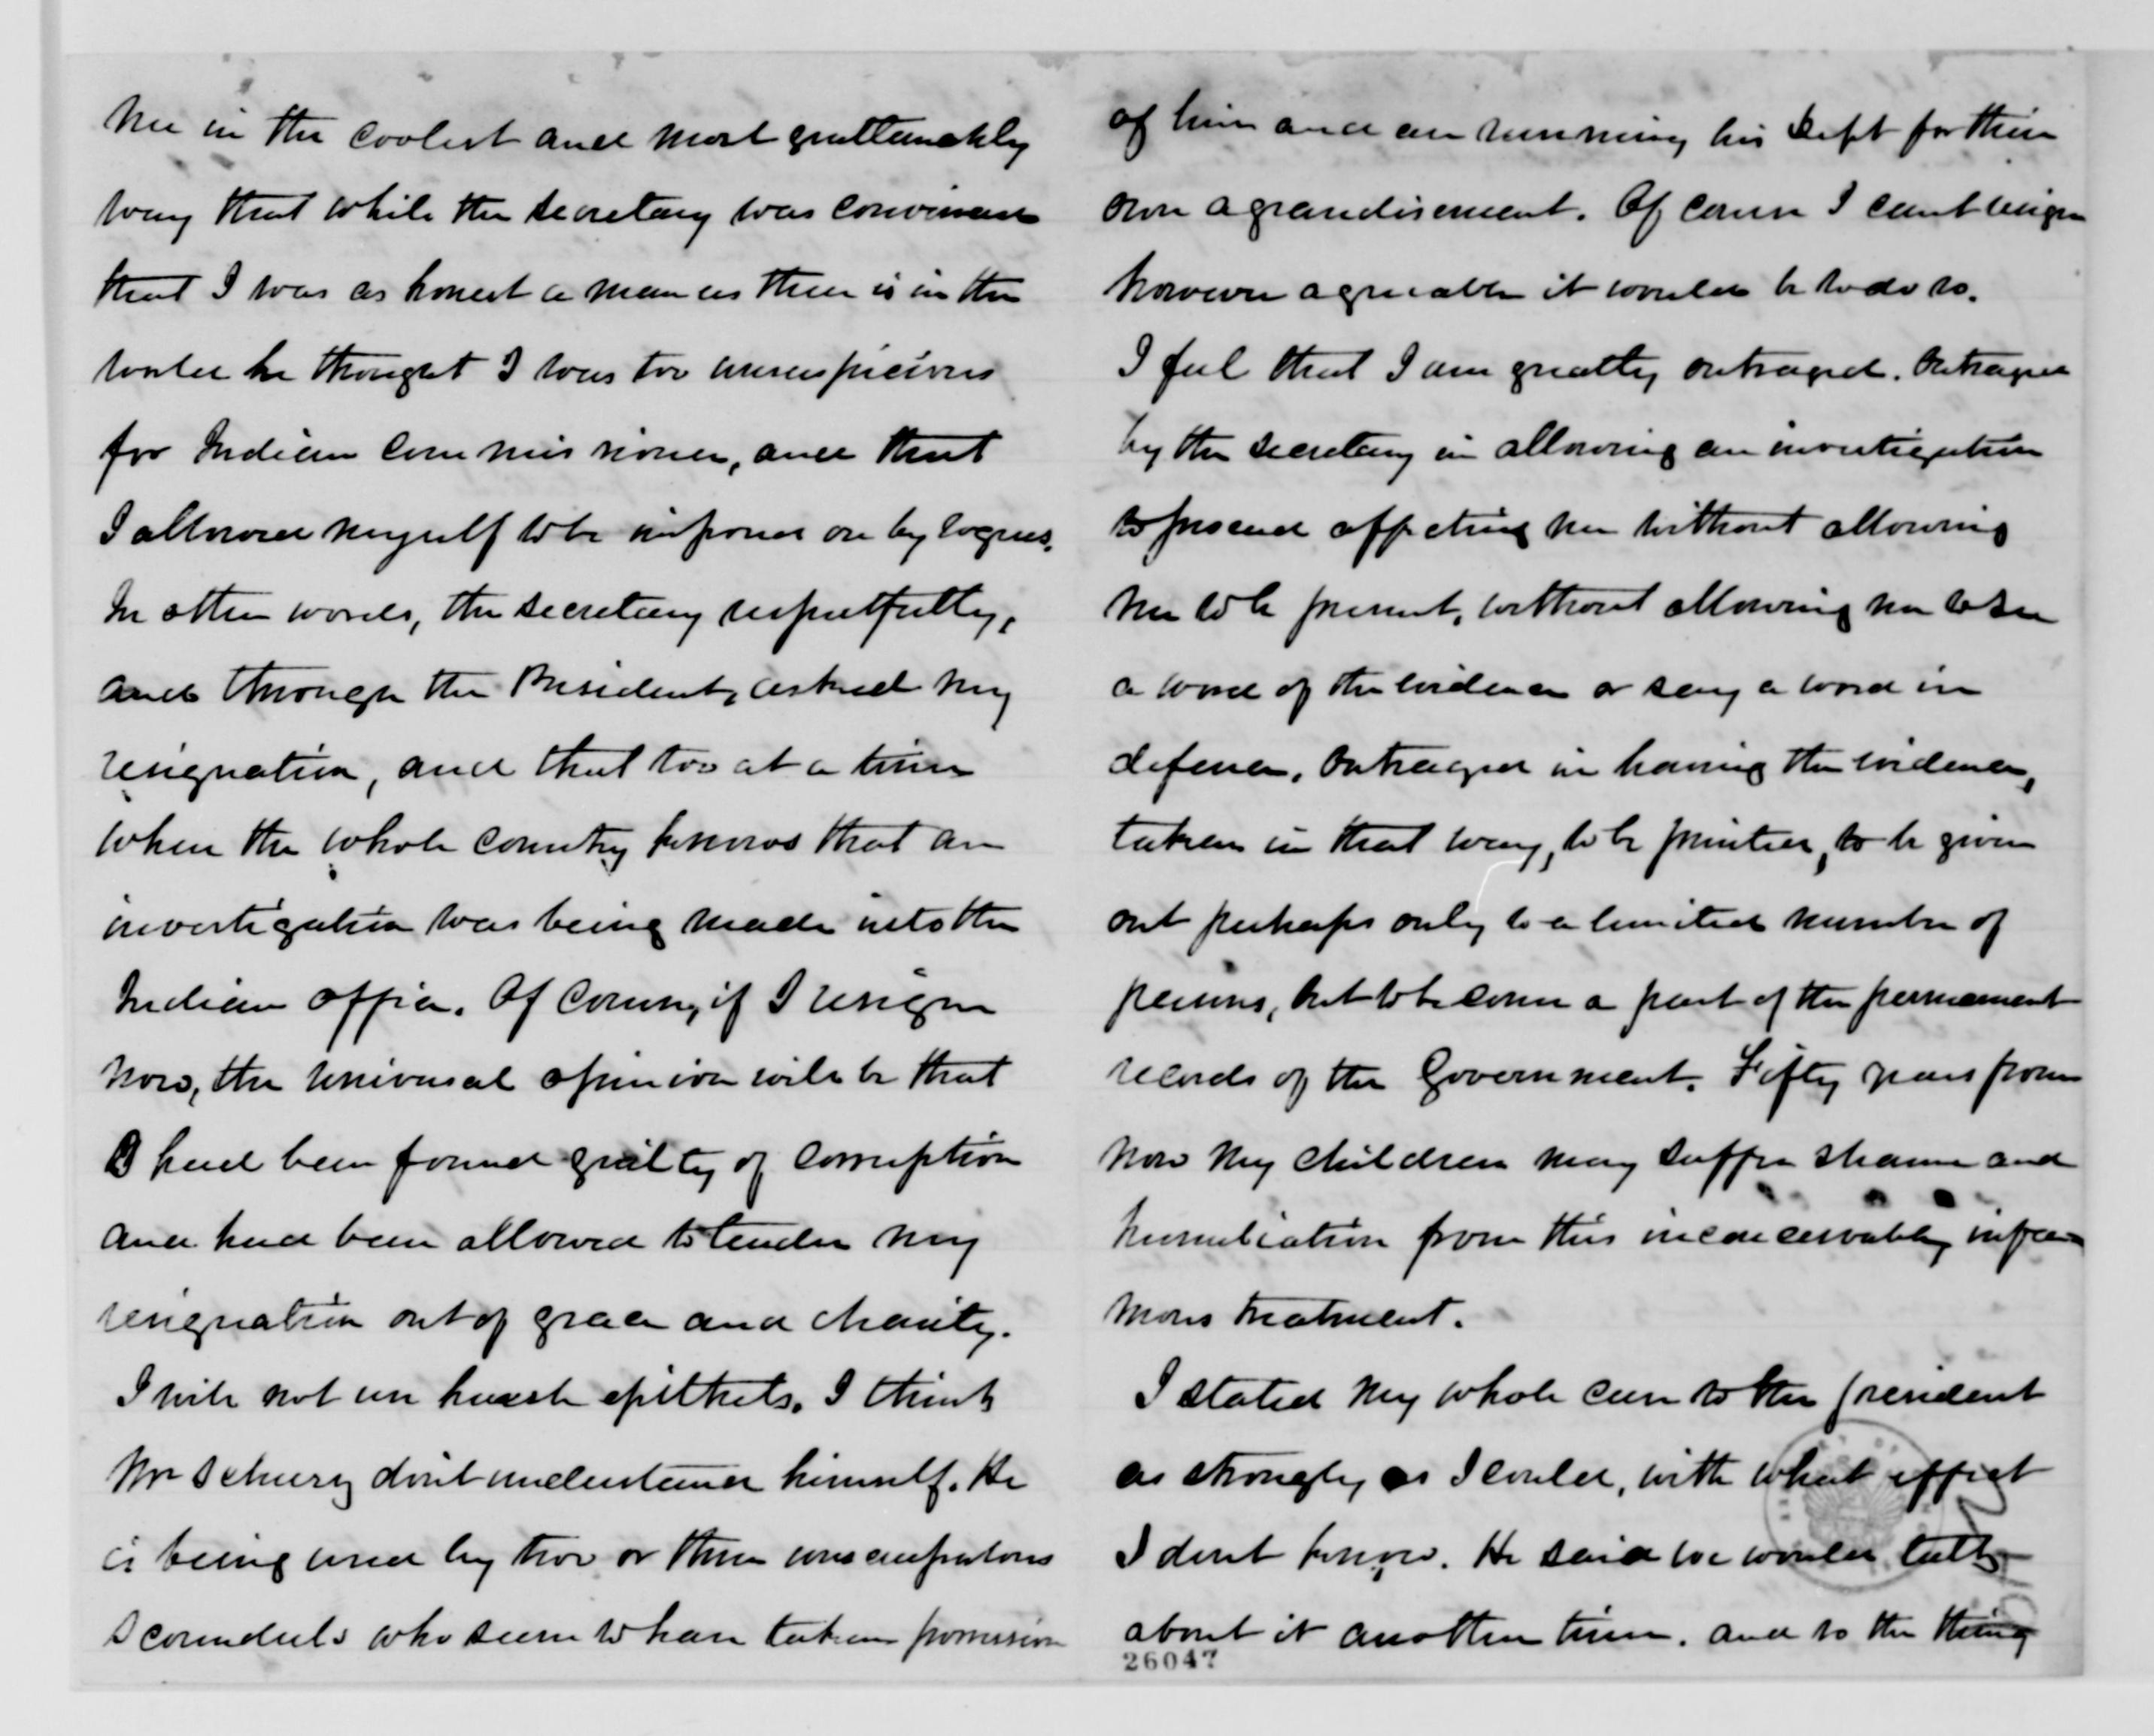 me in the coolest and most gentlemanly
way that while the Secretary was convinced
that I was as honest a man as there is in the
world he thought I was too unsuspicious
for Indian Commissioner, and that
I allowed myself to be imposed on by rogues.
In other words, the Secretary respectfully,
and through the President, asked my
resignation, and that too at a time
when the whole country knows that an
investigation was being made into the
Indian office. Of course, if I resign
now, the universal opinion will be that
I had been found guilty of corruption
and had been allowed to tender my
resignation out of grace and charity.
I will not use harsh epithets. I think
Mr Schurz dont understand himself. He
is being used by two or three
scoundrels who seem to have taken possession
of him and are running his Dept for their
own agrandisement. Of course I cant resign
however agreeable it would be to do so.
I feel that I am greatly outraged. Outraged
by the Secretary in allowing an investigation
to proceed affecting me without allowing
me to be present, without allowing me to see
a word of the evidence or say a word in
defence. Outraged in having the evidence,
taken in that way, to be printed, to be given
out perhaps only to a limited number of
persons, but to become a part of the permanent
records of the Government. Fifty years from
now my children may suffer shame and
humiliation from this inconceivably infa-
mous treatment.
I stated my whole case to the President
as strongly as I could, with what effect
I dont know. He said we would talk
about it another time. and so the thing
26047